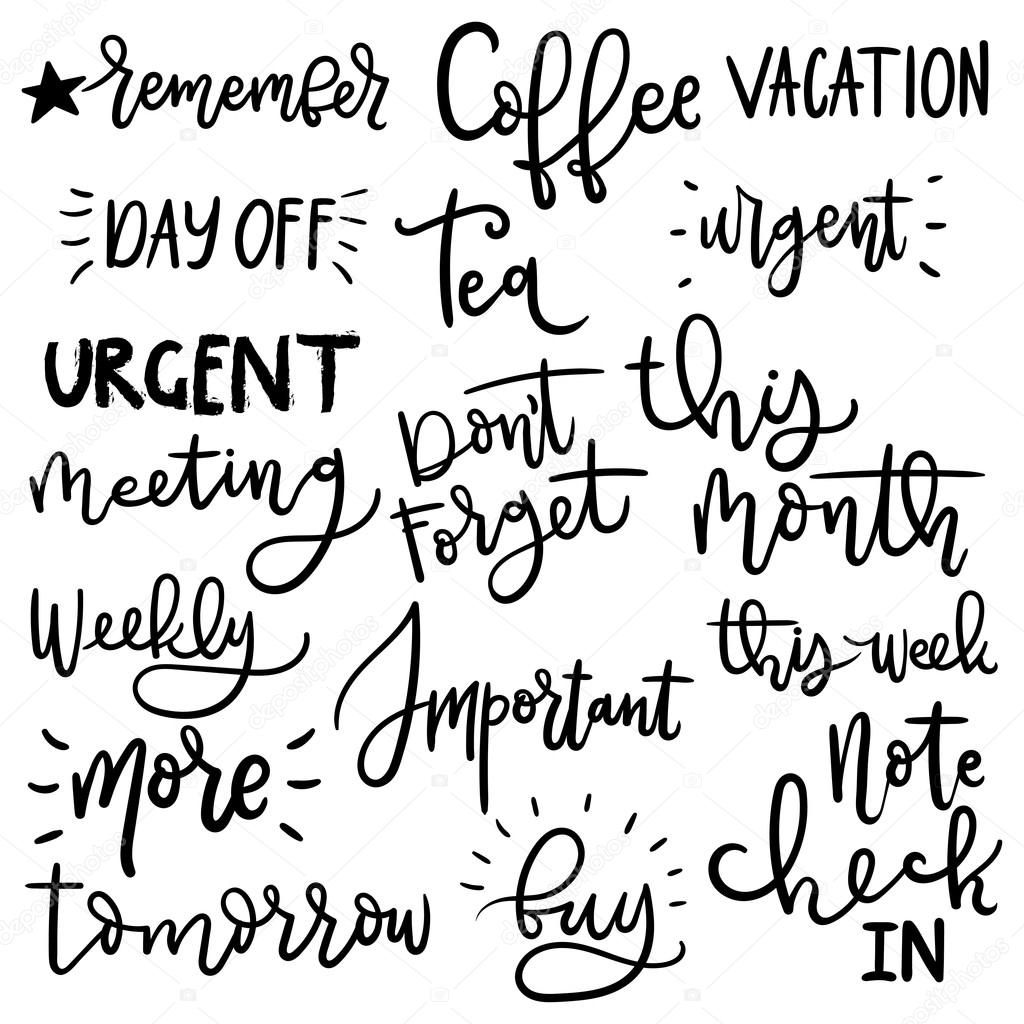 remember
Coffee
VACATION
DAY OFF
Tea
urgent
URGENT
Don't
Forget
this
month
meeting
Weekly
Important
this week
more
Note
check
IN
tomorrow
buy
depositphotos